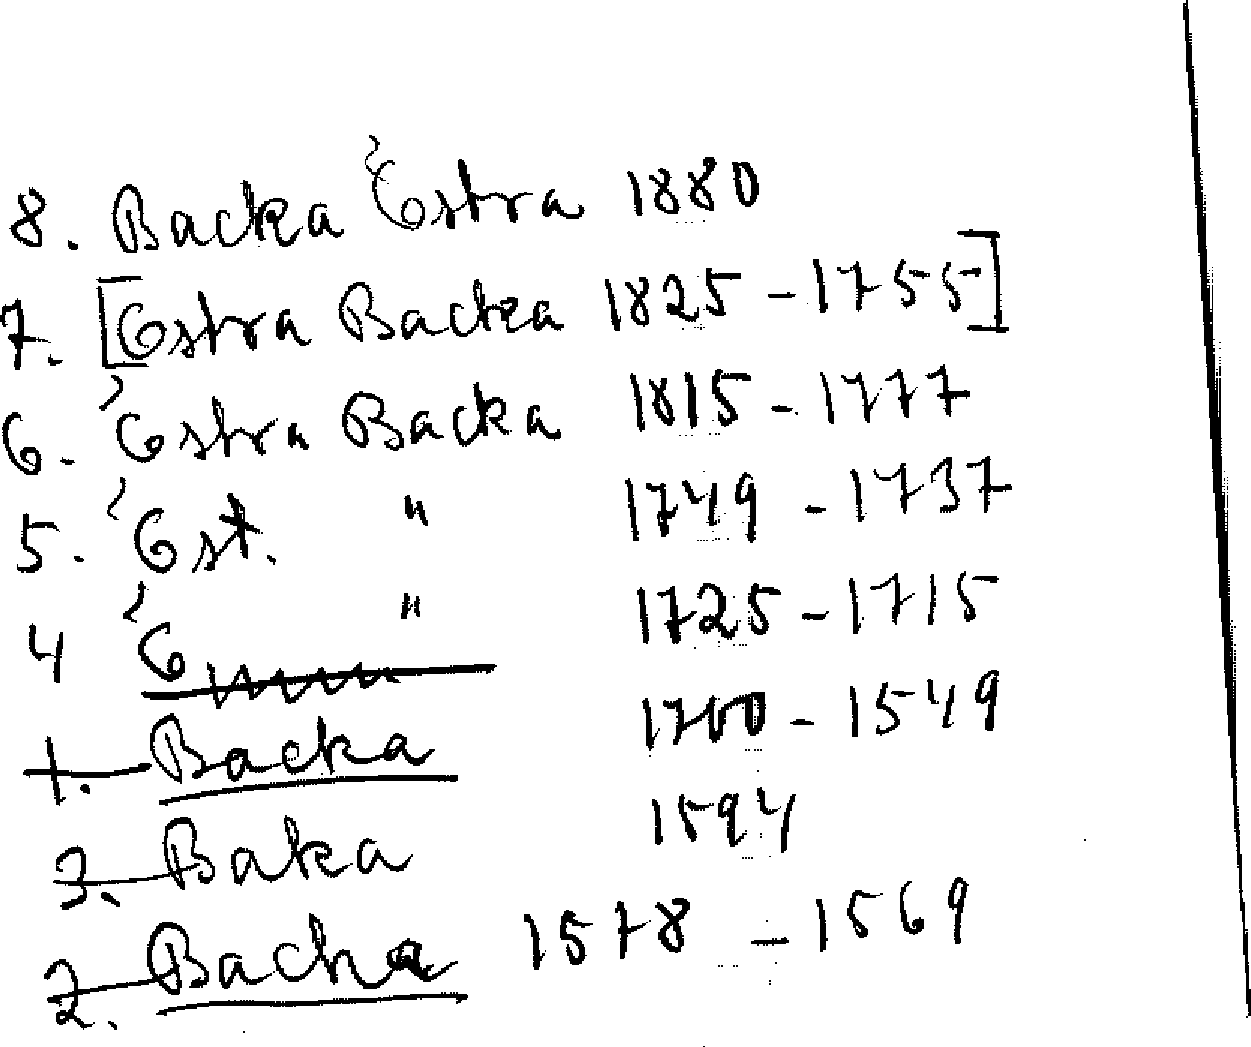 8. Backa Östra 1880
7. [Östra Backa 1825 - 1755]
6. Östra Backa 1815 - 1777
5. Öst. " 1749 - 1737
4 Ö " 1725 - 1715
1. Backa 1700 - 1549
3. Baka 1594
2. Bacha 1578 - 1569